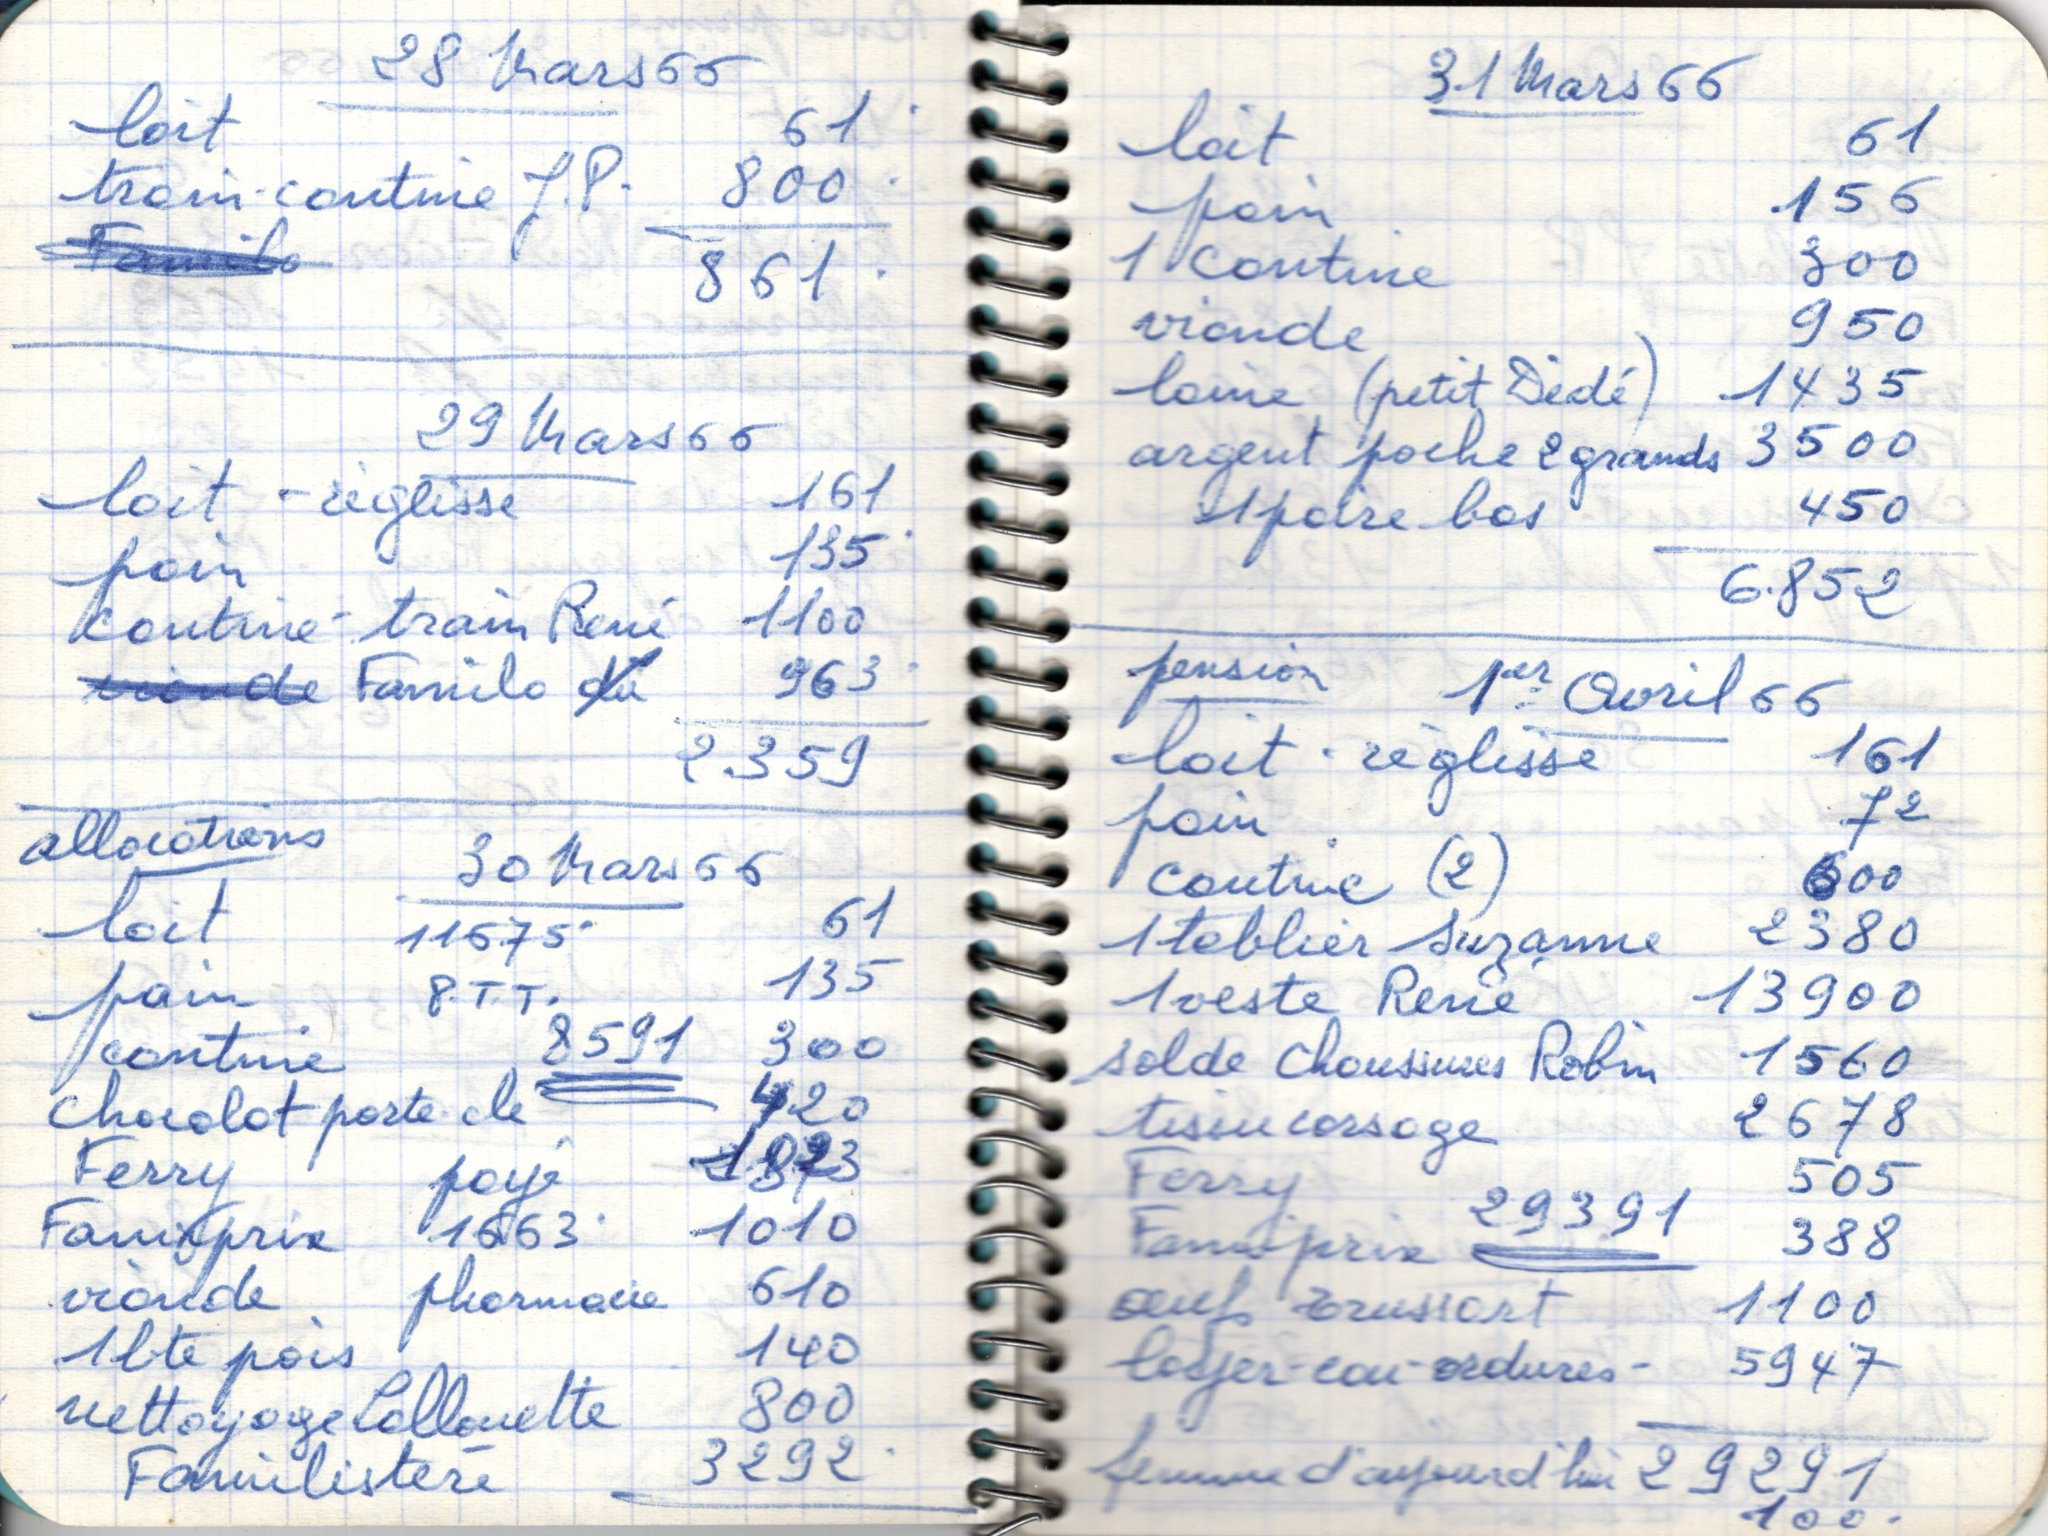 28 Mars 66
lait 61
train-cantine J.P. 800
Familo
861
29 Mars 66
lait - réglisse 161
pain 135
cantine - train René 1100
viande Familo du 963
2.359
allocations
30 Mars 66
lait 11675 61
pain P.T.T. 135
cantine 8591 300
chocolat porte clé 420
Ferry payé
Famiprix 1663 1010
viande pharmacie 610
1 bte pois 140
nettoyage 800
Familistère 3292
31 Mars 66
lait 61
pain 156
1 cantine 300
viande 950
laine (petit Dédé) 1435
argent poche 2 grands 3500
1 paire bas 450
6.852
pension 1er Avril 66
lait - réglisse 161
pain 72
cantine (2) 600
1 tablier Suzanne 2380
1 veste René 13900
solde chaussures Robin 1560
tissu corsage 2678
Ferry 505
Famiprix 29391 388
œufs 1100
loyer-eau-ordures- 5947
29291
femme d'aujourd'hui 100.